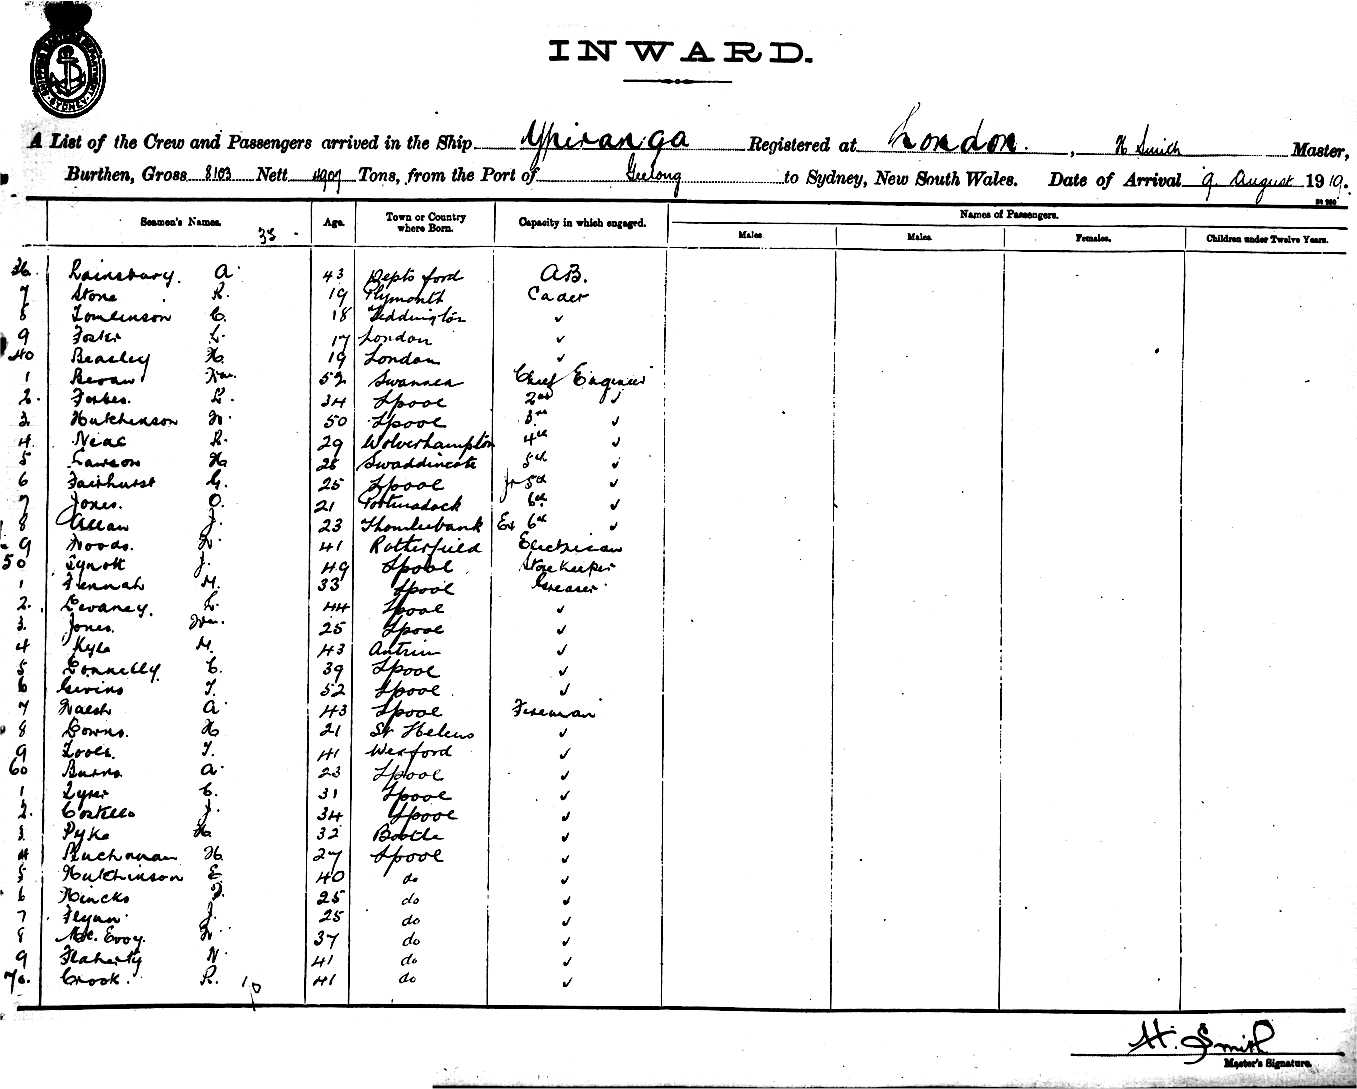 SYDNEY
INWARD.
A List of the Crew and Passengers arrived in the Ship Ypiranga Registered at London. , H Smith Master,
Burthen, Gross 8103 Nett 4907 Tons, from the Port of Geelong to Sydney, New South Wales. Date of Arrival 9 August 1919.
Seamen's Names. Age. Town or Country where Born. Capacity in which engaged. Names of Passengers.
35 - Males Males. Females. Children under Twelve Years.
36. Rainsbury. A. 43 Deptsford AB.
7 Stone R. 19 Plymouth Cadet
8 Tomlinson C. 18 Teddington ✓
9 Foster L. 17 London ✓
40 Beasley H. 19 London ✓
1 Bevan Wm. 52 Swansea Chief Engineer
2. Forbes. L. 34 Lpool 2nd ✓
3. Hutchinson W. 50 Lpool 3rd ✓
4. R. 29 Wolverhampton 4th ✓
5 Lawson H 25 Swaddincote 5th ✓
6 Fairhurst G. 25 Lpool Jr 5th ✓
7 Jones. O. 21 Portmadock 6th ✓
8 Allan J. 23 Thornliebank Ex 6th ✓
9 Woods. W. 41 Rotterfield Electrician
50 Tynott J. 49 Lpool Storekeeper
1 Fennah M. 33 Lpool Greaser
2. Devaney. L. 44 Lpool ✓
3. Jones. Wm. 25 Lpool ✓
4 Kyle M. 43 Antrim ✓
5 Connelly C. 39 Lpool ✓
6 Givins T. 52 Lpool ✓
7 Walsh A. 43 Lpool Fireman
8 Downs. H 21 St Helens ✓
9 Toole. T. 41 Wexford ✓
60 Burns A. 23 Lpool ✓
1 C. 31 Lpool ✓
2. Costello J. 34 Lpool ✓
3 Pyke H. 32 Bootle ✓
4 Buchanan H. 27 Lpool ✓
5 Hutchinson E 40 do ✓
6 Hincks 25 do ✓
7 Flynn J. 25 do ✓
8 Mc. Evoy. W. 37 do ✓
9 Flaherty N. 41 do ✓
70. Crook. R. 41 do ✓
10
H. Smith
Master's Signature.